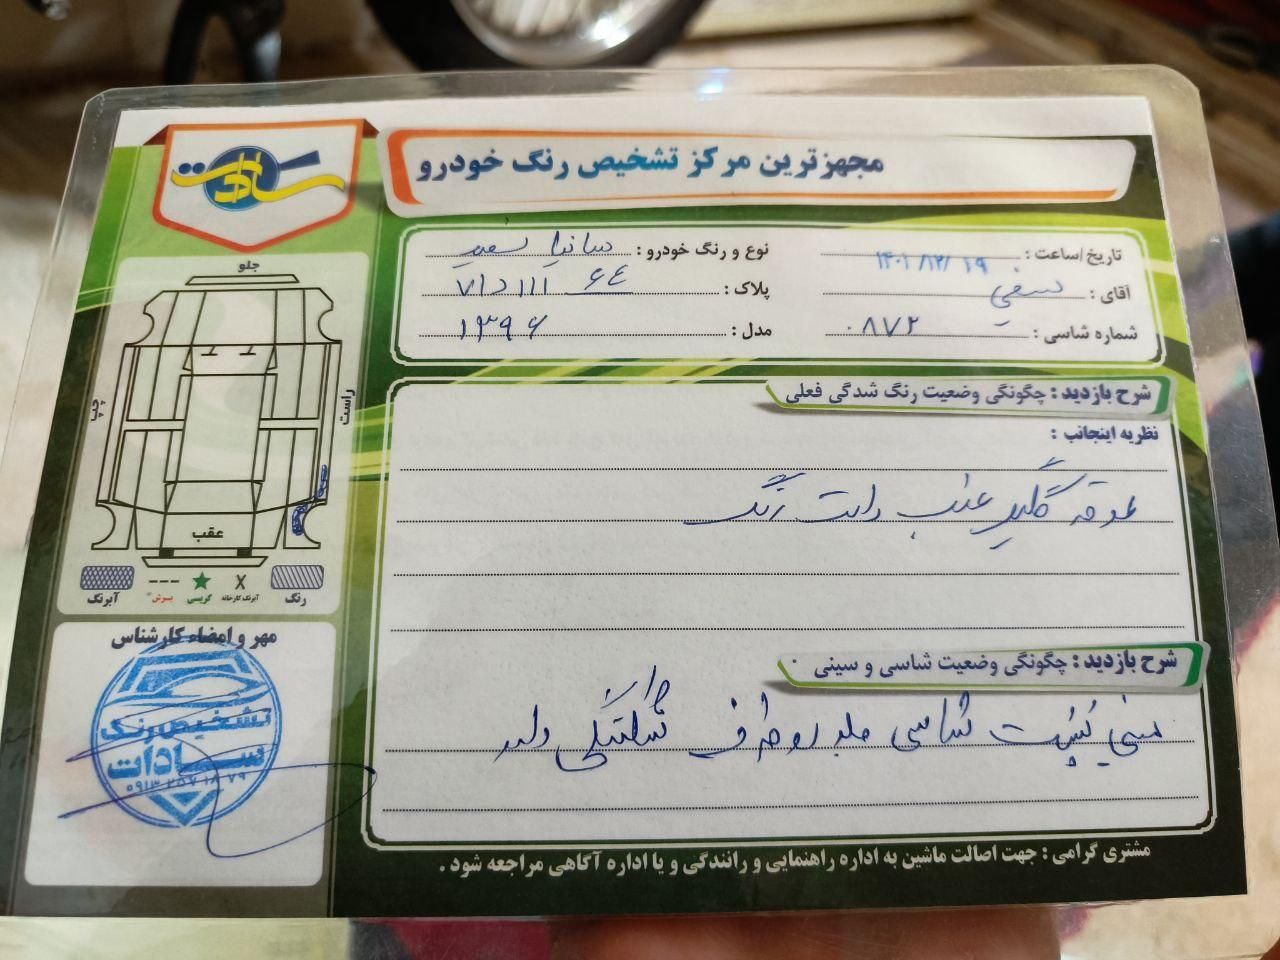 سادات
مجهزترین مرکز تشخیص رنگ خودرو
تاریخ/ساعت : ۱۴۰۱/۱۲/۱۹
نوع و رنگ خودرو : سایپا سفید
آقای :
پلاک :
شماره شاسی : ۰۸۷۲
مدل : ۱۳۹۶
جلو
چپ
راست
عقب
آبرنگ
برش
گریسی
آبرنگ کارخانه
رنگ
شرح بازدید : چگونگی وضعیت رنگ شدگی فعلی
نظریه اینجانب :
دور گلگیر عقب راست رنگ
شرح بازدید : چگونگی وضعیت شاسی و سینی
سینی پشت شاسی جلو دو طرف خوردگی دارد
مهر و امضاء کارشناس
تشخیص رنگ
سادات
۰۹۱۳ ۲۵۷ ۱۸ ۷۹
مشتری گرامی : جهت اصالت ماشین به اداره راهنمایی و رانندگی و یا اداره آگاهی مراجعه شود .